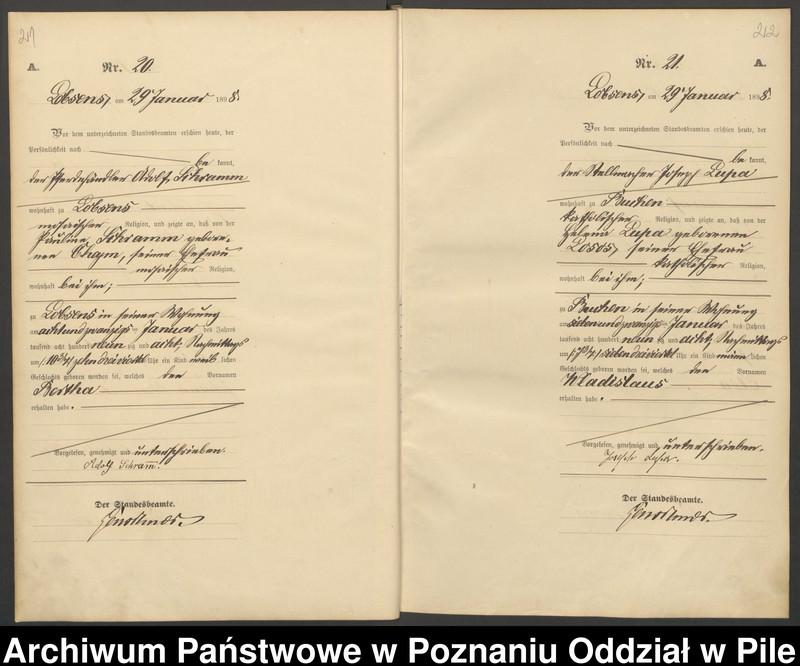 217
A. Nr. 20.
Lobsens, am 29 Januar 1898.
Vor dem unterzeichneten Standesbeamten erschien heute, der
Persönlichkeit nach
be kannt,
der Pferdehändler Adolf Schramm
wohnhaft zu Lobsens
mosaischer Religion, und zeigte an, daß von der
Pauline Schramm gebore-
nen Chaym, seiner Ehefrau
mosaischer Religion,
wohnhaft bei ihm;
zu Lobsens in seiner Wohnung
am achtundzwanzigsten Januar des Jahres
tausend acht hundert neun zig und acht, Nachmittags
um 10 3/4 zehn dreiviertel Uhr ein Kind weib lichen
Geschlechts geboren worden sei, welches den Vornamen
Bertha
erhalten habe.
Vorgelesen, genehmigt und unterschrieben.
Adolf Schram̄.
Der Standesbeamte.
212
Nr. 21. A.
Lobsens, am 29 Januar 1898.
Vor dem unterzeichneten Standesbeamten erschien heute, der
Persönlichkeit nach
be kannt,
der Stellmacher Joseph Lupa
wohnhaft zu
katholischer Religion, und zeigte an, daß von der
Helena Lupa geborenen
Losos, seiner Ehefrau
katholischer Religion,
wohnhaft bei ihm;
zu in seiner Wohnung
am siebenundzwanzigsten Januar des Jahres
tausend acht hundert neun zig und acht, Nachmittags
um 7 3/4 sieben dreiviertel Uhr ein Kind männ lichen
Geschlechts geboren worden sei, welches den Vornamen
Wladislaus
erhalten habe.
Vorgelesen, genehmigt und unterschrieben.
Der Standesbeamte.
Archiwum Państwowe w Poznaniu Oddział w Pile